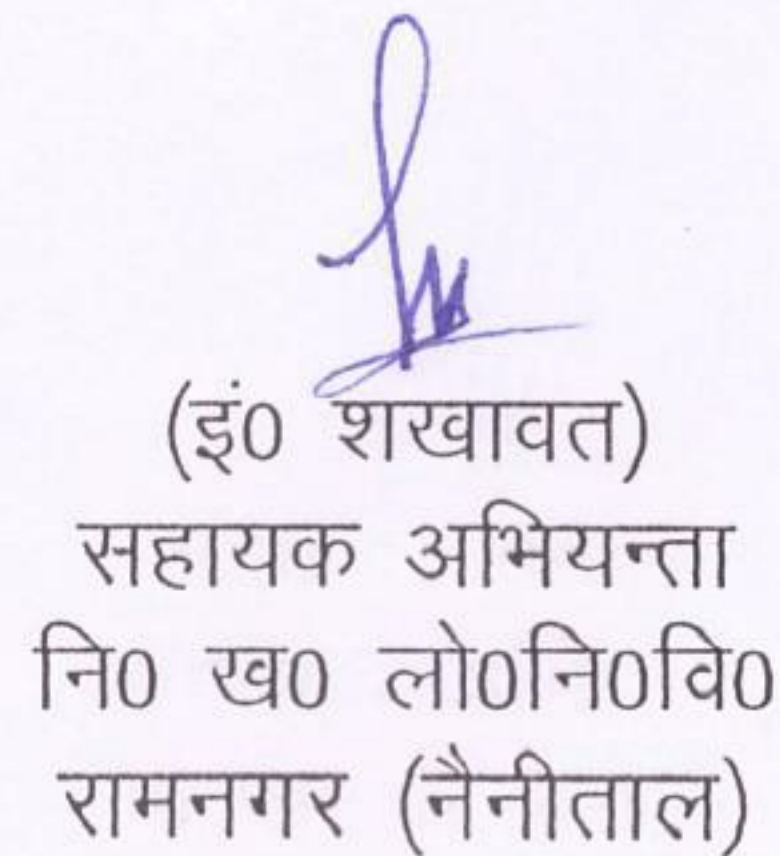 (इं0 शखावत)
सहायक अभियन्ता
नि0 ख0 लो0नि0वि0
रामनगर (नैनीताल)